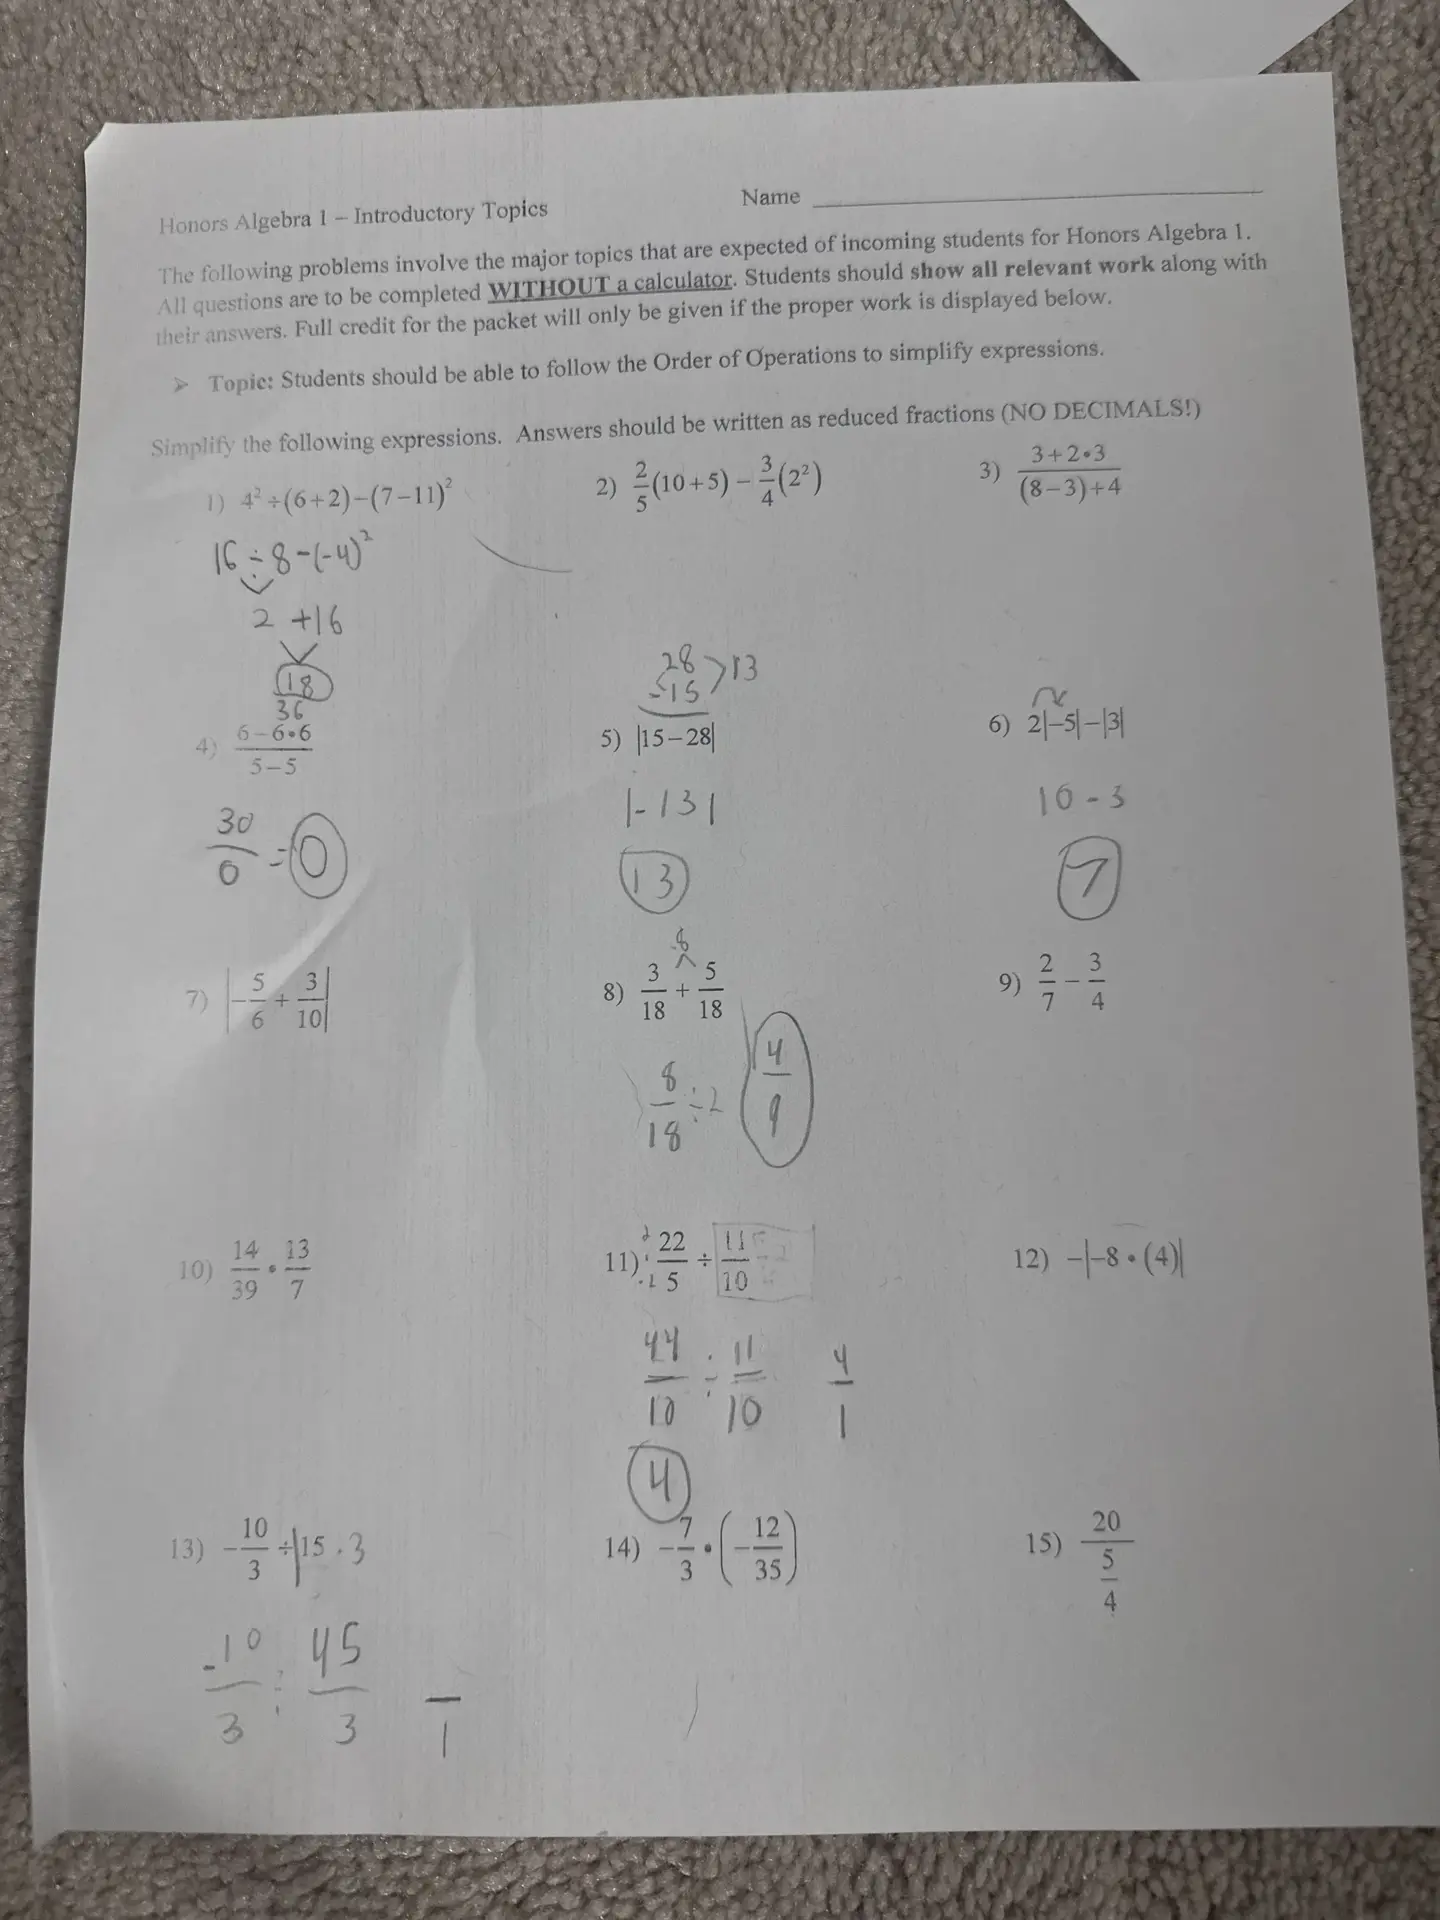 Honors Algebra 1 – Introductory Topics
Name
The following problems involve the major topics that are expected of incoming students for Honors Algebra 1.
All questions are to be completed WITHOUT a calculator. Students should show all relevant work along with
their answers. Full credit for the packet will only be given if the proper work is displayed below.
➢ Topic: Students should be able to follow the Order of Operations to simplify expressions.
Simplify the following expressions. Answers should be written as reduced fractions (NO DECIMALS!)
1) 4² ÷ (6+2) – (7–11)²
16 ÷ 8 – (-4)²
2 +16
18
2) 2/5 (10+5) – 3/4 (2²)
3) (3+2•3)/((8–3)+4)
36
4) (6–6•6)/(5–5)
30/0 = 0
28
-15 > 13
5) |15–28|
|-13|
13
6) 2|–5|–|3|
10 - 3
7
7) |–5/6 + 3/10|
8
8) 3/18 + 5/18
8/18 ÷ 2 4/9
9) 2/7 – 3/4
10) 14/39 • 13/7
11) 22/5 ÷ 11/10
44/10 ÷ 11/10 4/1
4
12) –|–8•(4)|
13) –10/3 ÷ 15 . 3
-10/3 ÷ 45/3 /1
14) –7/3 • (–12/35)
15) 20/(5/4)